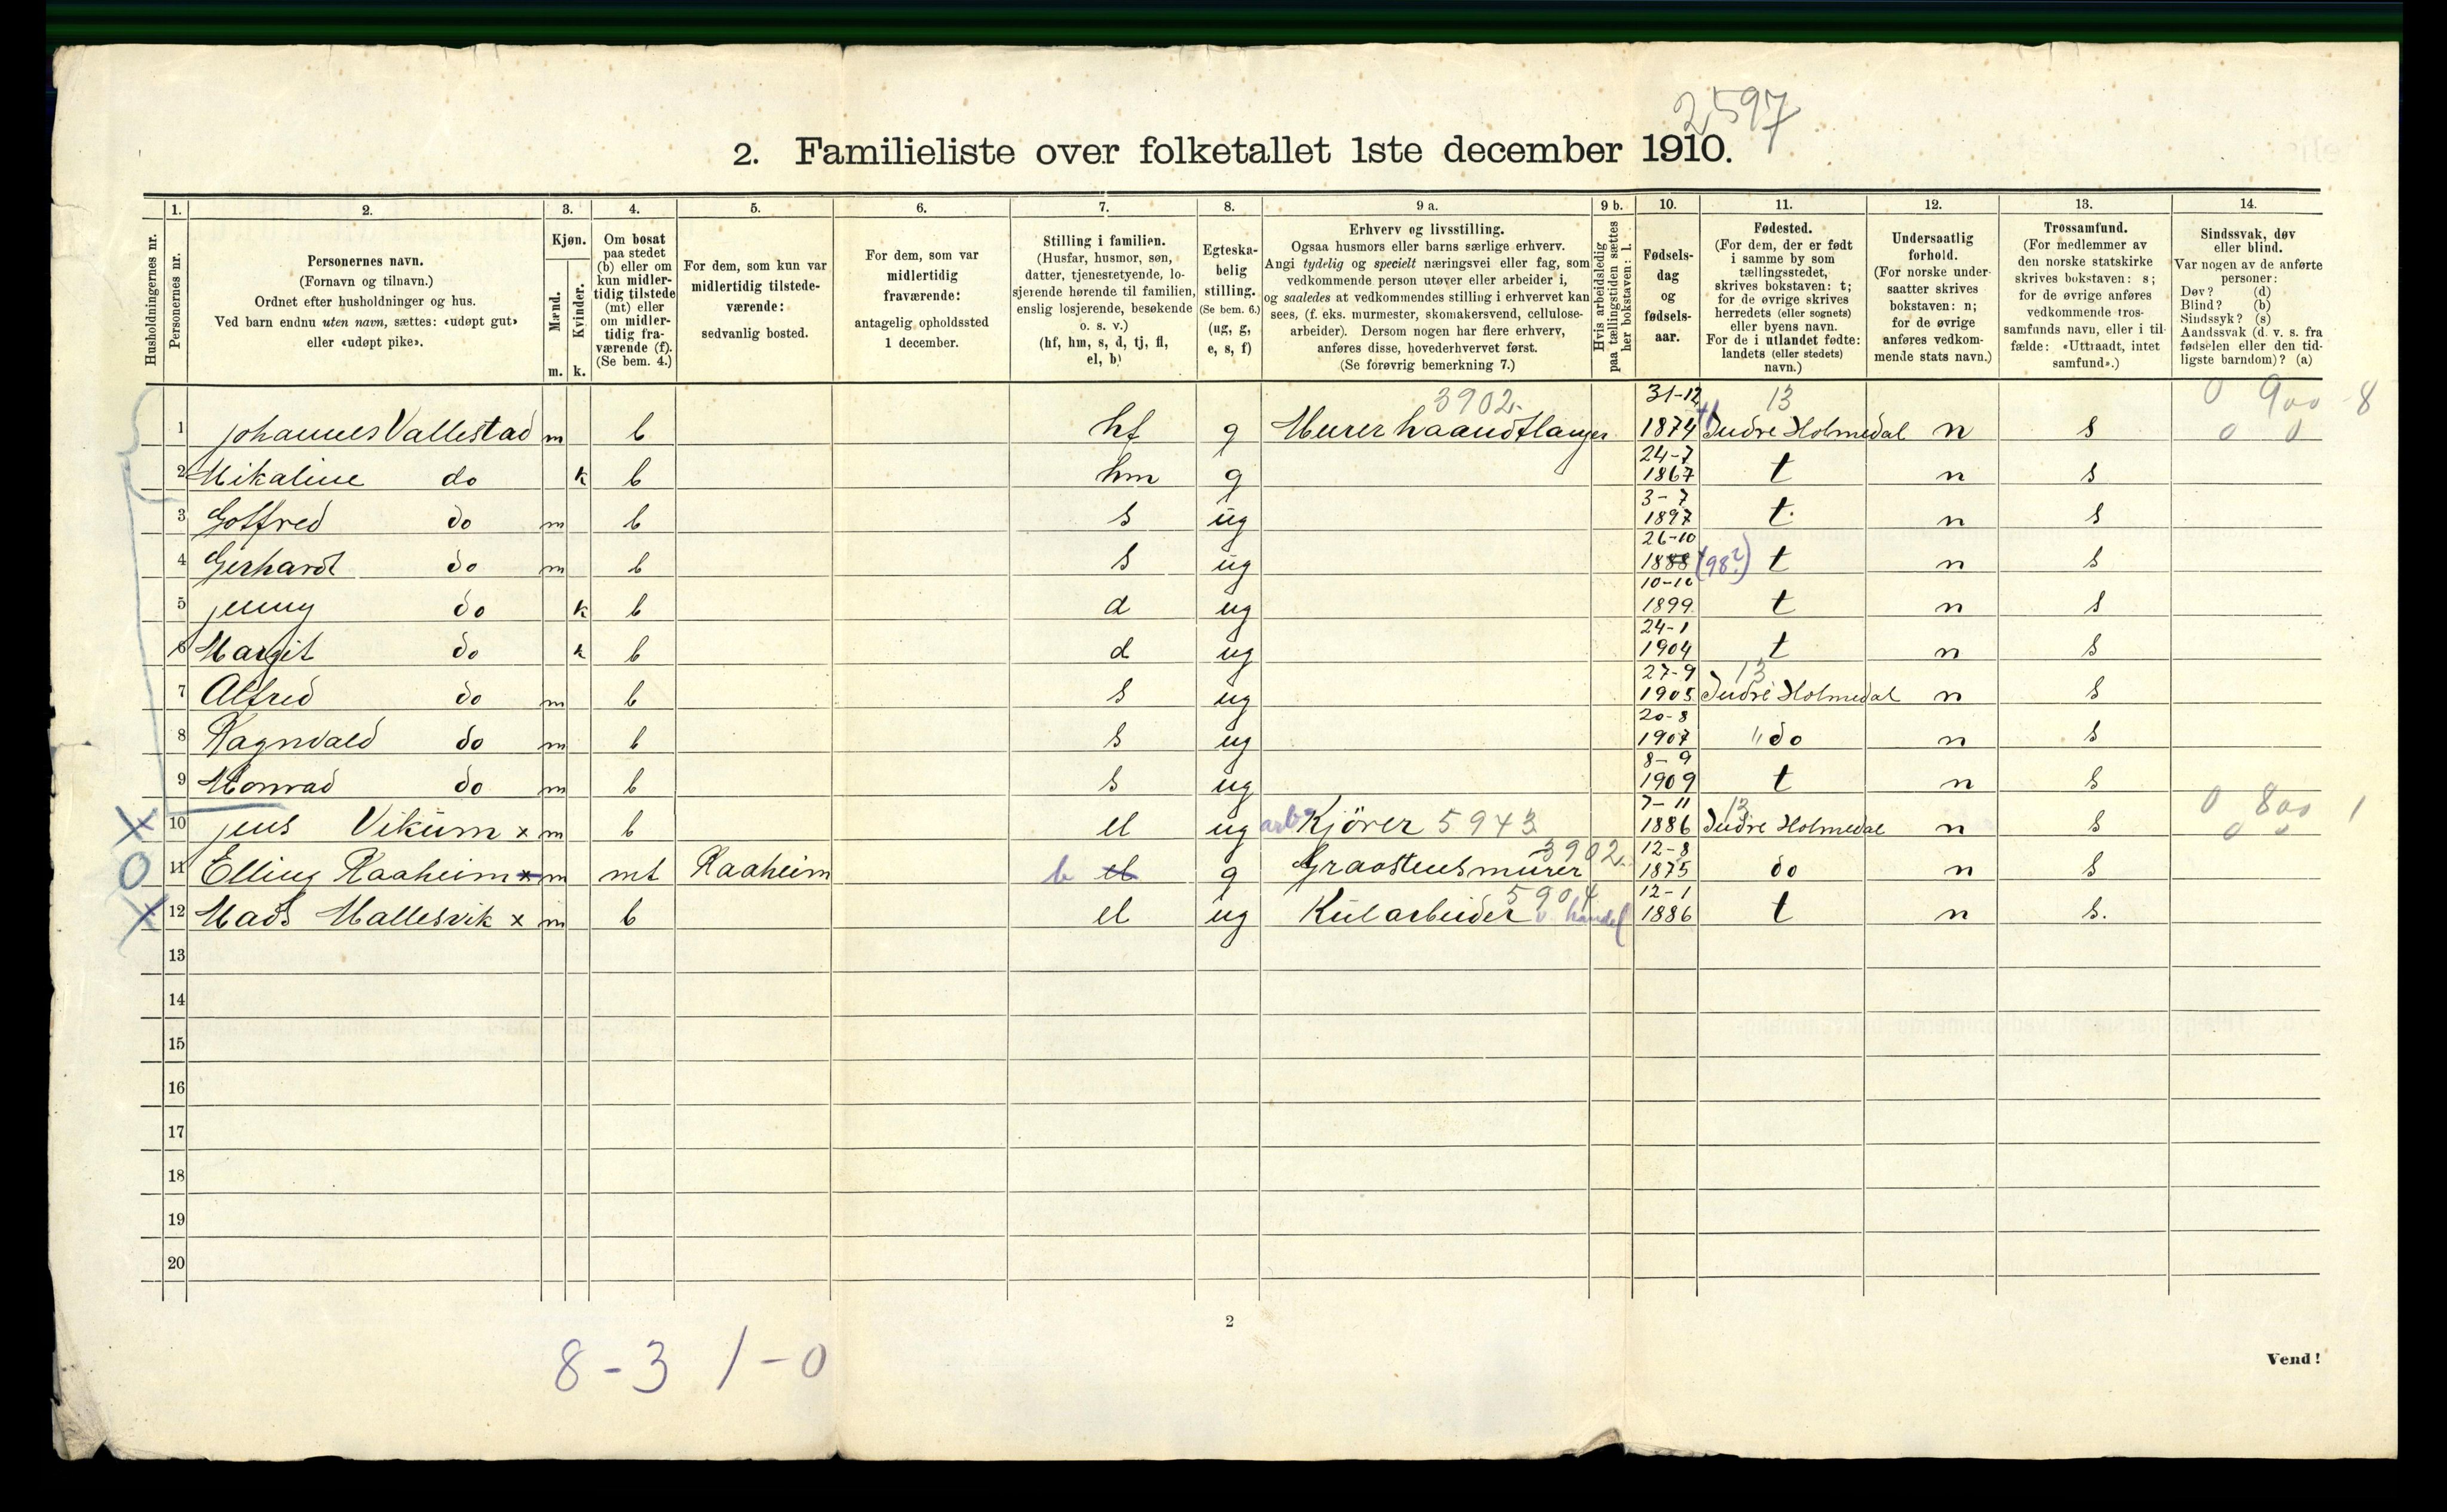 2597
2. Familieliste over folketallet 1ste december 1910.
1. 2. 3. 4. 5. 6. 7. 8. 9 a. 9 b. 10. 11. 12. 13. 14.
Husholdningernes nr.
Personernes nr.
Personernes navn.
(Fornavn og tilnavn.)
Ordnet efter husholdninger og hus.
Ved barn endnu uten navn, sættes: «udøpt gut»
eller «udøpt pike».
Kjøn.
Mænd.
Kvinder.
m. k.
Om bosat
paa stedet
(b) eller om
kun midler-
tidig tilstede
(mt) eller
om midler-
tidig fra-
værende (f).
(Se bem. 4.)
For dem, som kun var
midlertidig tilstede-
værende:
sedvanlig bosted.
For dem, som var
midlertidig
fraværende:
antagelig opholdssted
1 december.
Stilling i familien.
(Husfar, husmor, søn,
datter, tjenesretyende, lo-
sjerende hørende til familien,
enslig losjerende, besøkende
o. s. v.)
(hf, hm, s, d, tj, fl,
el, b)
Egteska-
belig
stilling.
(Se bem. 6.)
(ug, g,
e, s, f)
Erhverv og livsstilling.
Ogsaa husmors eller barns særlige erhverv.
Angi tydelig og specielt næringsvei eller fag, som
vedkommende person utøver eller arbeider i,
og saaledes at vedkommendes stilling i erhvervet kan
sees, (f. eks. murmester, skomakersvend, cellulose-
arbeider). Dersom nogen har flere erhverv,
anføres disse, hovederhvervet først.
(Se forøvrig bemerkning 7.)
Hvis arbeidsledig
paa tællingstiden sættes
her bokstaven: l.
Fødsels-
dag
og
fødsels-
aar.
Fødested.
(For dem, der er født
i samme by som
tællingsstedet,
skrives bokstaven: t;
for de øvrige skrives
herredets (eller sognets)
eller byens navn.
For de i utlandet fødte:
landets (eller stedets)
navn.)
Undersaatlig
forhold.
(For norske under-
saatter skrives
bokstaven: n;
for de øvrige
anføres vedkom-
mende stats navn.)
Trossamfund.
(For medlemmer av
den norske statskirke
skrives bokstaven: s;
for de øvrige anføres
vedkommende tros-
samfunds navn, eller i til-
fælde: «Uttraadt, intet
samfund».)
Sindssvak, døv
eller blind.
Var nogen av de anførte
personer:
Døv? (d)
Blind? (b)
Sindssyk? (s)
Aandssvak (d. v. s. fra
fødselen eller den tid-
ligste barndom)? (a)
3902. 31-12 13 0 900 8
1 Johannes Vallestad m b hf g Murer haandtlanger 1874 Indre Holmedal n s 0 0
24-7
2 Mikaline do k b hm g 1867 t n s
3-7
3 Gotfred do m b s ug 1897 t n s
26-10
4 Gerhardt do m b s ug 1888 (98?) t n s
10-10
5 Jenny do k b d ug 1899 t n s
24-1
6 Margit do k b d ug 1904 t n s
27-9 13
7 Alfred do m b s ug 1905 Indre Holmedal n s
20-8
8 Ragnvald do m b s ug 1907 " do n s
8-9
9 Monrad do m b s ug 1909 t n s
7-11 13 0 800 1
X 10 Jens Vikum x m b el ug arb. Kjörer 5943 1886 Indre Holmedal n s 0 0
3902. 12-8
O 11 Elling Raaheim x m mt Raaheim b el g Graastensmurer 1875 do n s
5904 12-1
X 12 Mads Mallesvik x m b el ug Kularbeider v. handel 1886 t n s.
13
14
15
16
17
18
19
20
2
8-3 1-0
Vend!